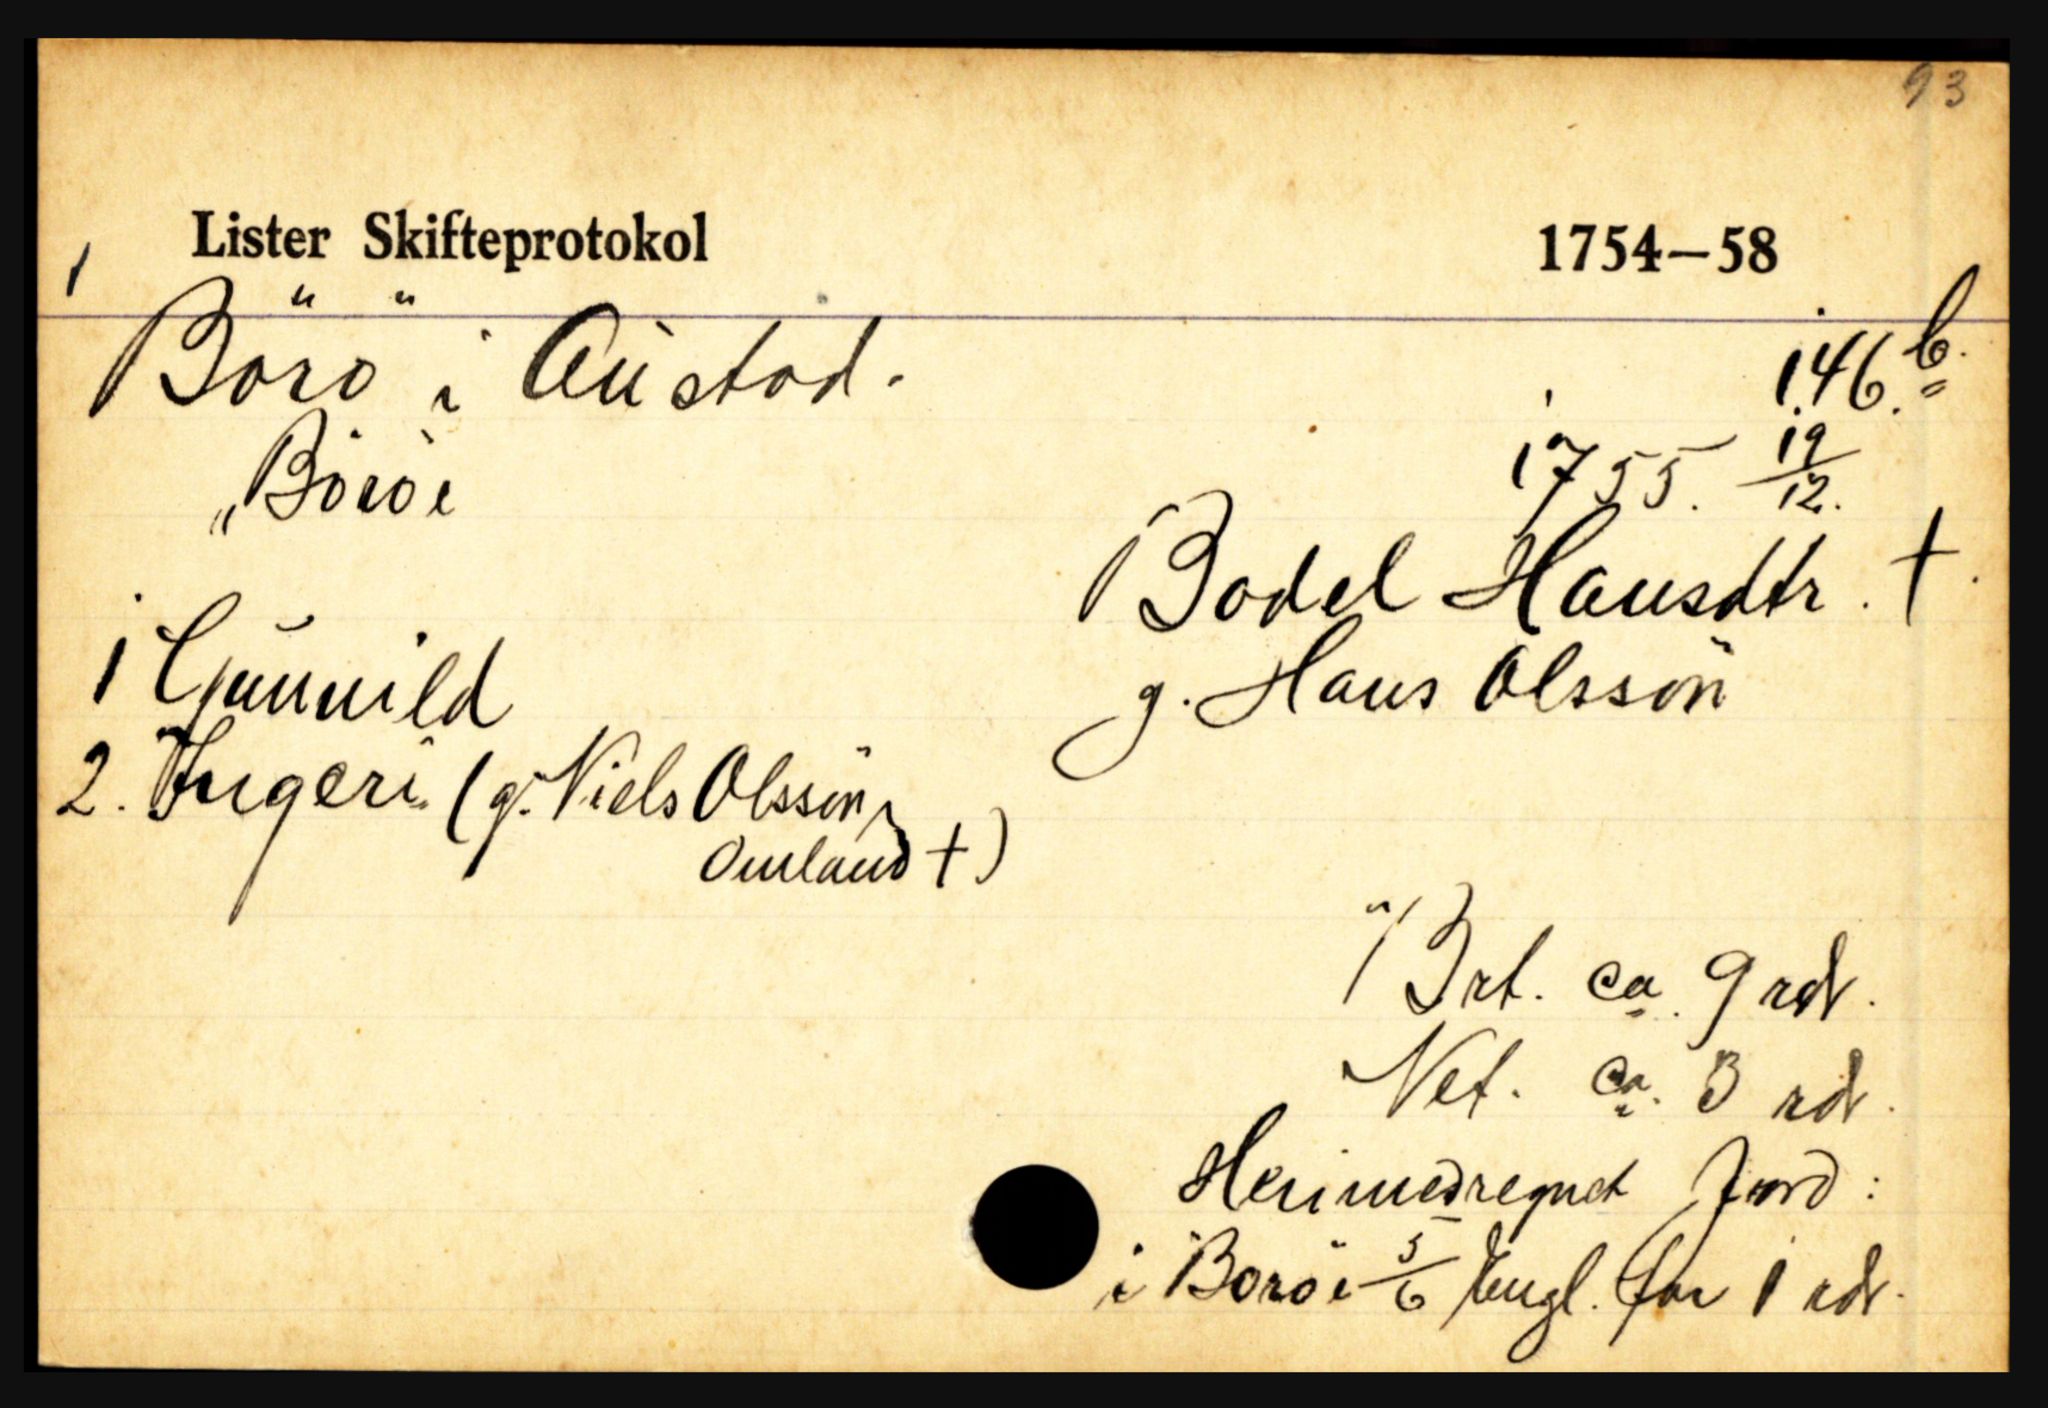 93
Lister Skifteprotokol 1754–58
1
Börö i Austad.
146 b.
„Böröe
1755. 19/12.
Bodel Hansdtr. †.
1 Gunnild
g. Hans Olssön
2. Ingeri (g. Niels Olssön,
Omland †)
Brt. ca. 9 rdr.
Net. ca. 3 rdr.
Herimedregnet Jord:
i Boröe 5/6 Engl. for 1 rdr.